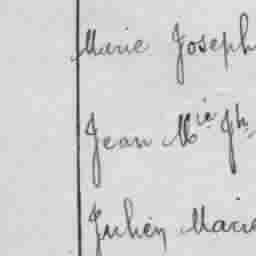 Marie Joseph
Jean Mie Jh
Julien Marie